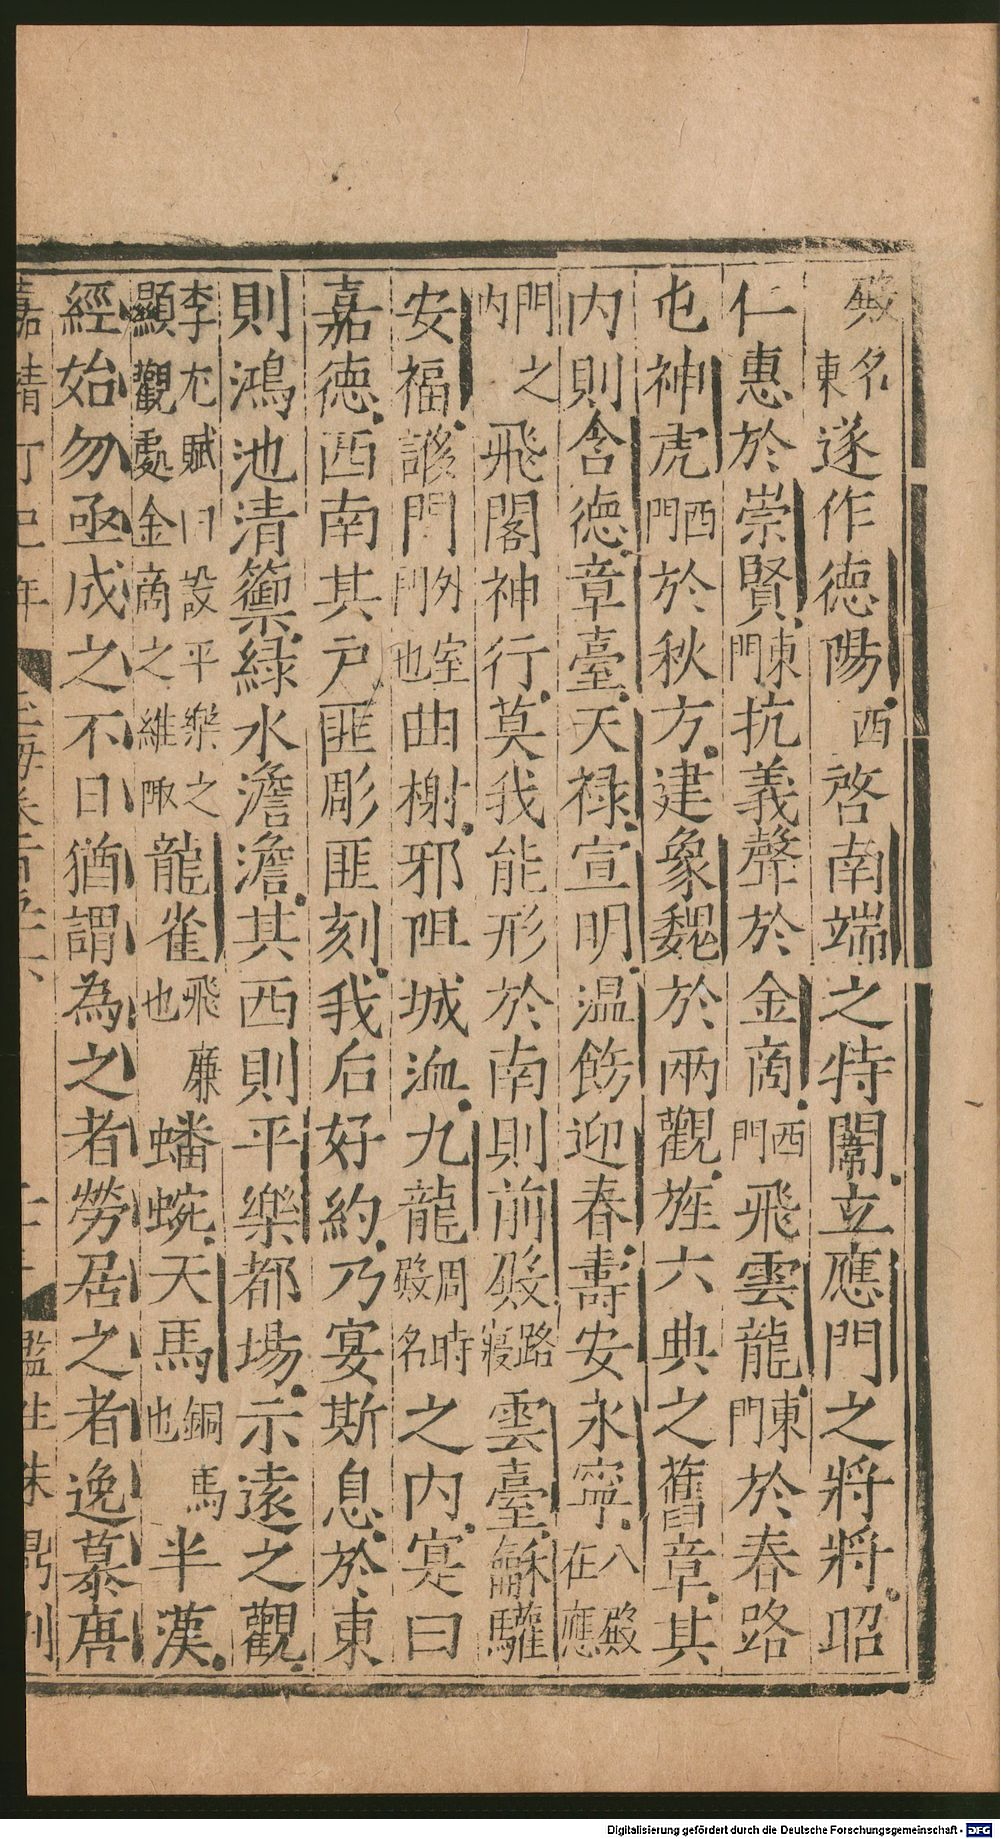 殿名東遂作德陽西啓南端之特闈立應門之將將昭
仁惠於崇賢東門抗義聲於金商西門飛雲龍東門於春路
屯神虎西門於秋方建象魏於兩觀旌六典之舊章其
内則含德章臺天祿宣明温飭迎春壽安永寧八殿在應
門之内飛閣神行莫我能形於南則前殿路寢雲臺龢驩
安福謻門外室門也曲榭邪阻城洫九龍周時殿名之内寔曰
嘉德西南其戶匪彫匪刻我后好約乃宴斯息於東
則鴻池清籞緑水澹澹其西則平樂都場示遠之觀
李尤賦曰設平樂之顯觀處金商之維陬龍雀飛廉也蟠蜿天馬銅馬也半漢
經始勿亟成之不日猶謂為之者勞居之者逸慕唐
嘉靖丁巳年
監生朱鼎刊
Digitalisierung gefördert durch die Deutsche Forschungsgemeinschaft - DFG